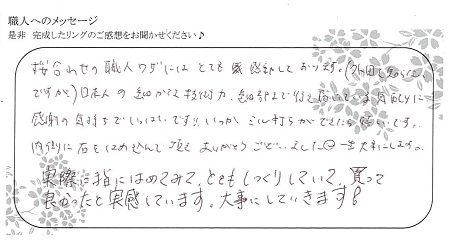 職人へのメッセージ
是非 完成したリングのご感想をお聞かせください♪
桜合わせの職人ワザにはとても感動しております。(外国も知らないですが)
日本人の細かな技術力、細部まで行き届いている気配りに
感謝の気持ちでいっぱいです!!いつかミル打ちができたら嬉しいです。
内側に石をはめ込んで頂き ありがとうございました 一生大事にします。
実際に指にはめてみて、とてもしっくりしていて、買って
良かったと実感しています。大事にしていきます!